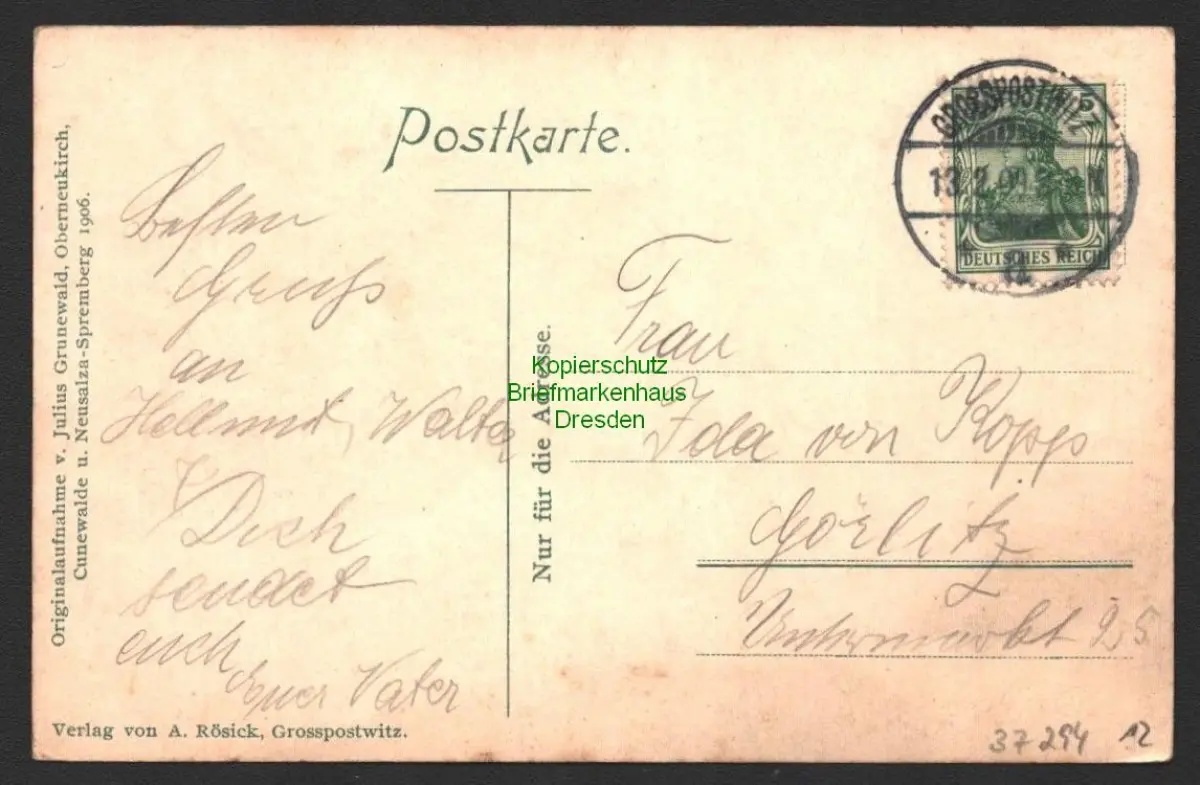 Postkarte.
GROSSPOSTWITZ
DEUTSCHES REICH
Originalaufnahme v. Julius Grunewald, Oberneukirch,
Cunewalde u. Neusalza-Spremberg 1906.
Besten
Gruss
an
Hellmut, Walter
Dich
sendet
euch
Euer Vater
Verlag von A. Rösick, Grosspostwitz.
Nur für die Adresse.
Kopierschutz
Briefmarkenhaus
Dresden
Frau
Ida von Kopp
Görlitz
Untermarkt 25
37294 12